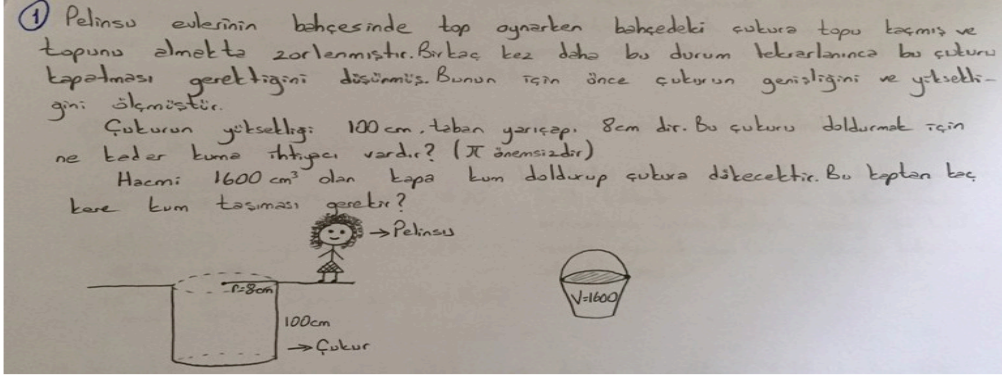 1 Pelinsu evlerinin bahçesinde top oynarken bahçedeki çukura topu kaçmış ve
topunu almakta zorlanmıştır. Birkaç kez daha bu durum tekrarlanınca bu çukuru
kapatması gerektiğini düşünmüş. Bunun için önce çukurun genişliğini ve yüksekli-
ğini ölçmüştür.
Çukurun yüksekliği 100 cm, taban yarıçapı 8cm dir. Bu çukuru doldurmak için
ne kadar kuma ihtiyacı vardır? (π önemsizdir)
Hacmi 1600 cm³ olan kaba kum doldurup çukura dökecektir. Bu kaptan kaç
kere kum taşıması gerekir?
→Pelinsu
r=8cm
V=1600
100cm
→Çukur